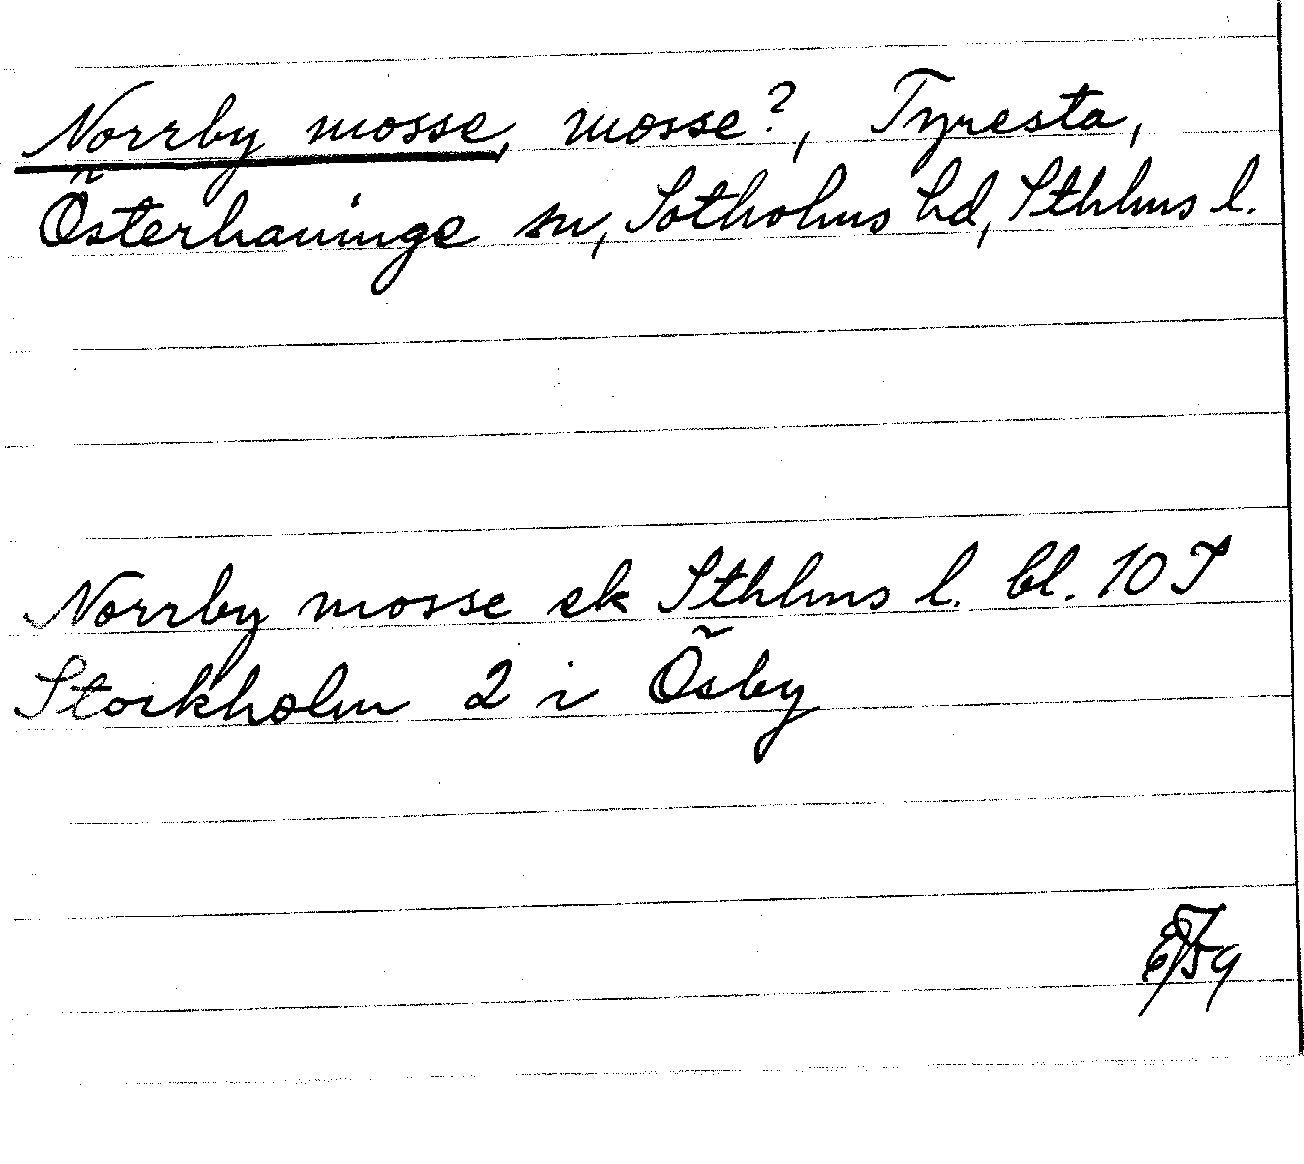 Norrby mosse, mosse?, Tyresta,
Österhaninge sn, Sotholms hd, Sthlms l.
Norrby mosse ek Sthlms l. bl. 10 I
Stockholm 2 i Ösby